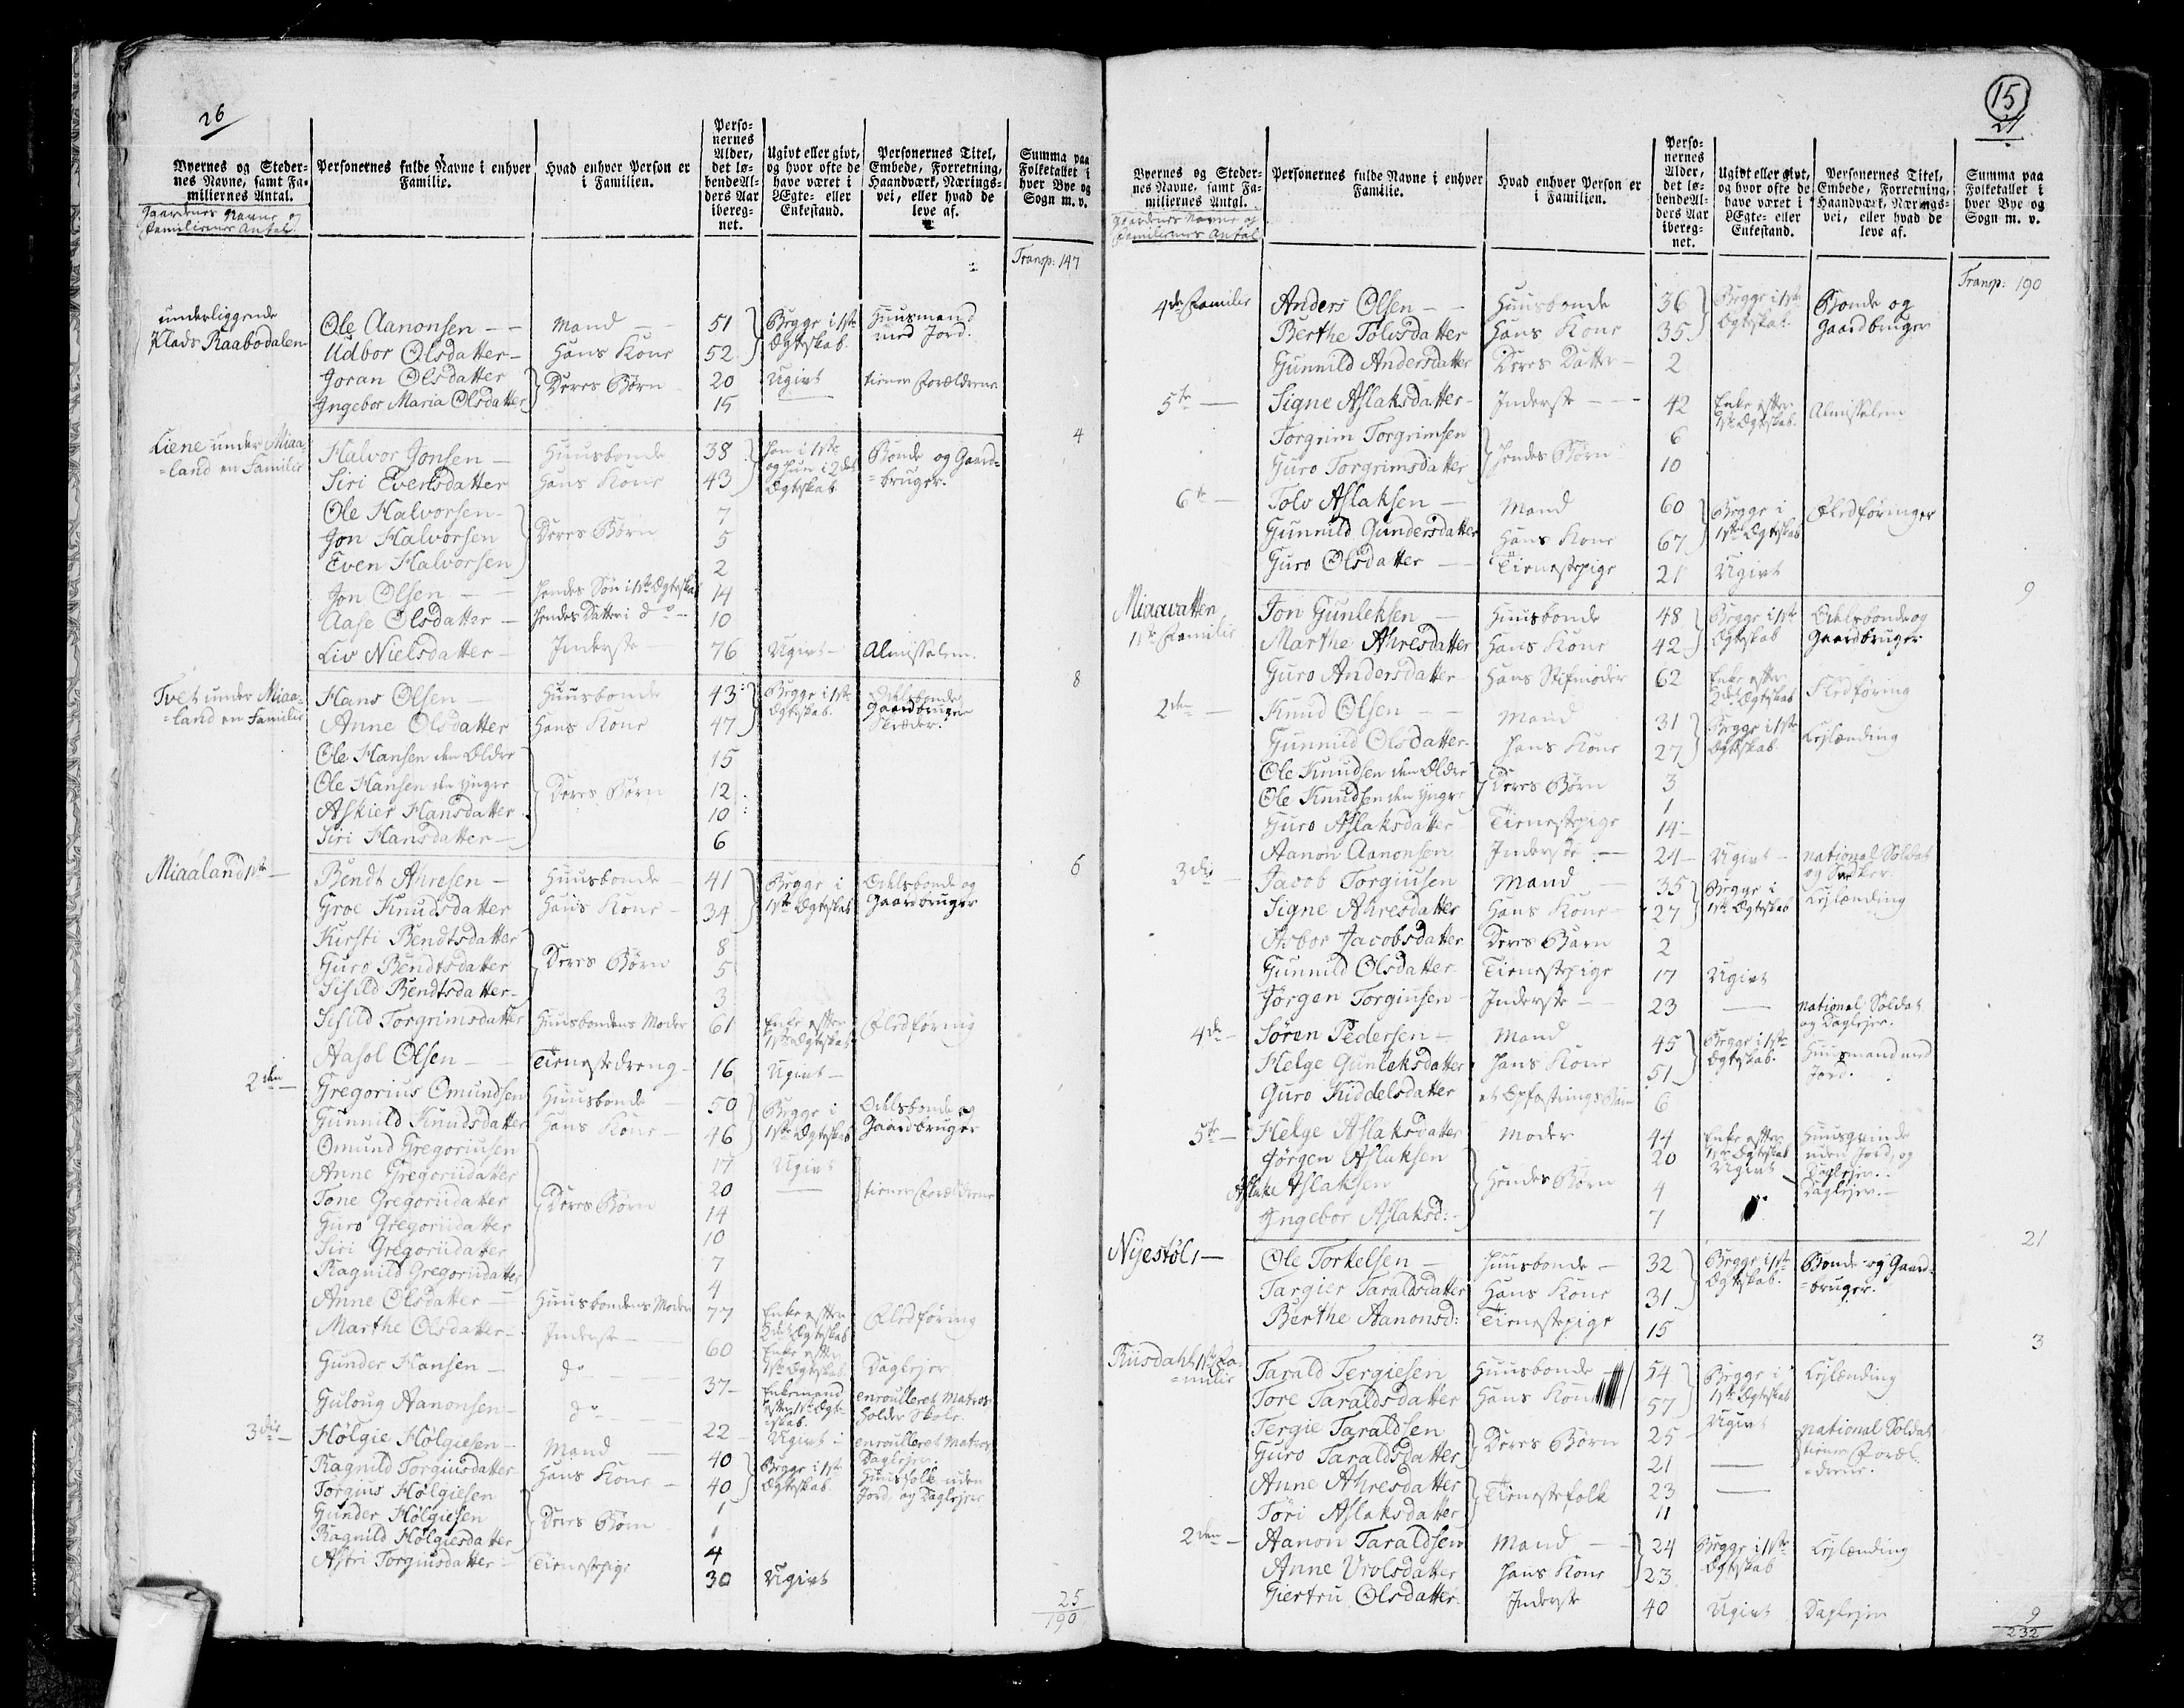 26
Byernes og Steder-
nes Navne, samt Fa-
miliernes Antal.
Gaardenes Navne og
Familiernes Antal.
Personernes fulde Navne i enhver
Familie.
Hvad enhver Person er
i Familien.
Perso-
nernes
Alder,
det lø-
bende Al-
ders Aar
ibereg-
net.
Ugivt eller givt,
og hvor ofte de
have været i
Ægte- eller
Enkestand.
Personernes Titel,
Embede, Forretning,
Haandværk, Nærings-
vei, eller hvad de
leve af.
Summa paa
Folketallet i
hver Bye og
Sogn m. v.
Transp: 147
underliggende
Plads Raabodalen
Ole Aanonsen Mand 51 Begge i 1ste Huusmand
Udbor Olsdatter Hans Kone 52 Ægteskab med Jord.
Joran Olsdatter Deres Børn 20 Ugivt tiener Forældrene
Ingebor Maria Olsdatter 15
4
Liene under Miaa-
=land en Familie
Halvor Jonsen Huusbonde 38 han i 1ste Bonde og Gaard-
Siri Evensdatter Hans Kone 43 og hun i 2det =bruger.
Ægteskab
Ole Halvorsen 7
Jon Halvorsen Deres Børn 5
Even Halvorsen 2
Jon Olsen hendes Søn i 1ste Ægteskab 14
Aase Olsdatter hendes Datter i do 10
Liv Nielsdatter Inderste 76 Ugivt Almisselem.
8
Tvet under Miaa-
=land en Familie
Hans Olsen Huusbonde 43 Begge i 1ste Odelsbonde
Anne Olsdatter Hans Kone 47 Ægteskab Gaardbruger
Skræder.
Ole Hansen den Ældre 15
Ole Hansen den Yngre Deres Børn 12
Askier Hansdatter 10
Siri Hansdatter 6
6
Miaaland 1ste
Bendt Ahresen Huusbonde 41 Begge i Odelsbonde og
Groe Knudsdatter Hans Kone 34 1ste Ægteskab Gaardbruger
Kirsti Bendtsdatter 8
Guro Bendtsdatter Deres Børn 5
Sisild Bendtsdatter 3
Sislid Torgrimsdatter Huusbondens Moder 61 Enke efter Fledføring
1ste Ægteskab
Aasol Olsen Tienestedreng 16 Ugivt
2den
Gregorius Omundsen Huusbonde 50 Begge i Odelsbonde og
Gunnild Knudsdatter Hans Kone 46 1ste Ægteskab Gaardbruger
Omund Gregoriusen 17 Ugivt
Anne Gregoriidatter 20 tiener Forældrene
Tone Gregoriidatter Deres Børn 14
Guro Gregoriidatter 10
Siri Gregoriidatter 7
Ragnild Gregoriidatter 4
Anne Olsdatter Huusbondens Moder 77 Enke efter Fledføring
2det Ægteskab
Marthe Olsdatter Inderste 60 Enke efter
1ste Ægteskab Daglejer
Gunder Hansen do 37 Enkemand enroulleret Matros
efter 1ste Ægte- holder Skole.
skab.
Guloug Aanonsen do 22 Ugivt enroulleret Matros
Daglejer.
3die
Hølgie Hølgiesen Mand 40 Begge i 1ste Huusfolk uden
Ragnild Torgiusdatter Hans Kone 40 Ægteskab Jord, og Daglejer
Torgius Hølgiesen 1
Gunder Hølgiesen Deres Børn 1
Ragnild Hølgiesdatter 4
Astri Torgiusdatter Tienestepige 30 Ugivt
25
190
15
27
Byernes og Steder-
nes Navne, samt Fa-
miliernes Antal.
Gaardenes Navne og
Familiernes Antal
Personernes fulde Navne i enhver
Familie.
Hvad enhver Person er
i Familien.
Perso-
nernes
Alder,
det lø-
bende Al-
ders Aar
ibereg-
net.
Ugivt eller givt,
og hvor ofte de
have været i
Ægte- eller
Enkestand.
Personernes Titel,
Embede, Forretning,
Haandværk, Nærings-
vei, eller hvad de
leve af.
Summa paa
Folketallet i
hver Bye og
Sogn m. v.
Transp: 190
4de Familie
Anders Olsen Huusbonde 36 Begge i 1ste Bonde og
Berthe Tolvsdatter Hans Kone 35 Ægteskab. Gaardbruger
Gunnild Andersdatter Deres Datter 2
5te
Signe Aslaksdatter Inderste 42 Enke efter Almisselem
1ste Ægteskab.
Torgrim Torgrimsen 6
Guro Torgrimsdatter hendes Børn 10
6te
Tolv Aslaksen Mand 60 Begge i Fledføringer
Gunnild Gundersdatter Hans Kone 67 1ste Ægteskab
Guro Olsdatter Tienestepige 21 Ugivt
9
Miaavatten
1ste Familie
Jon Gunleksen Huusbonde 48 Begge i 1ste Odelsbonde og
Marthe Ahresdatter Hans Kone 42 Ægteskab Gaardbruger
Guro Andersdatter Hans Stifmoder 62 Enke efter Fledføring
2det Ægteskab
2den
Knud Olsen Mand 31 Begge i 1ste Lejlænding
Gunnild Olsdatter Hans Kone 27 Ægteskab
Ole Knudsen den Ældre Deres Børn 3
Ole Knudsen den Yngre 1
Guro Aslaksdatter Tienestepige 14
Aanon Aanonsen Inderste 24 Ugivt national Soldat
3die
Jacob Torgiusen Mand 35 Begge i Lejlænding
Signe Ahresdatter Hans Kone 27 1ste Ægteskab
Asbor Jacobsdatter Deres Barn 2
Gunnild Olsdatter Tienestepige 17 Ugivt
Jørgen Torgiusen Inderste 23 national Soldat
og Daglejer.
4de
Søren Pedersen Mand 45 Begge i 1ste Huusmand med
Helge Gunleksdatter Hans Kone 51 Ægteskab. Jord.
Guro Kiddelsdatter et Opfostrings Barn 6
5te
Helge Aslaksdatter Moder 44 Enke efter Huusqvinde
Jørgen Aslaksen 20 1ste Ægteskab uden Jord, og
Ugivt Daglejer.
Aslake Aslaksen Hendes Børn 4 Daglejer.
Ingebor Aslaksd: 7
21
Nyestøl 1
Ole Torkelsen Huusbonde 32 Begge i 1ste Bonde og Gaard-
Targier Taraldsdatter Hans Kone 31 Ægteskab. =bruger.
Berthe Aanonsd: Tienestepige 15
3
Riisdahl 1ste Fa-
=milie
Tarald Tergiesen Huusbonde 54 Begge i Lejlænding
Tore Taraldsdatter Hans Kone 57 1ste Ægteskab
Tergie Taraldsen Deres Børn 25 Ugivt national Soldat
Guro Taraldsdatter 21 tiener Foræl-
=drene.
Anne Ahresdatter Tienestefolk 23
Töri Aslaksdatter 11
2den
Aanon Taraldsen Mand 24 Begge i 1ste Lejlænding
Anne Vrolsdatter Hans Kone 23 Ægteskab
Giertru Olsdatter Inderste 40 Ugivt Daglejer
9
232